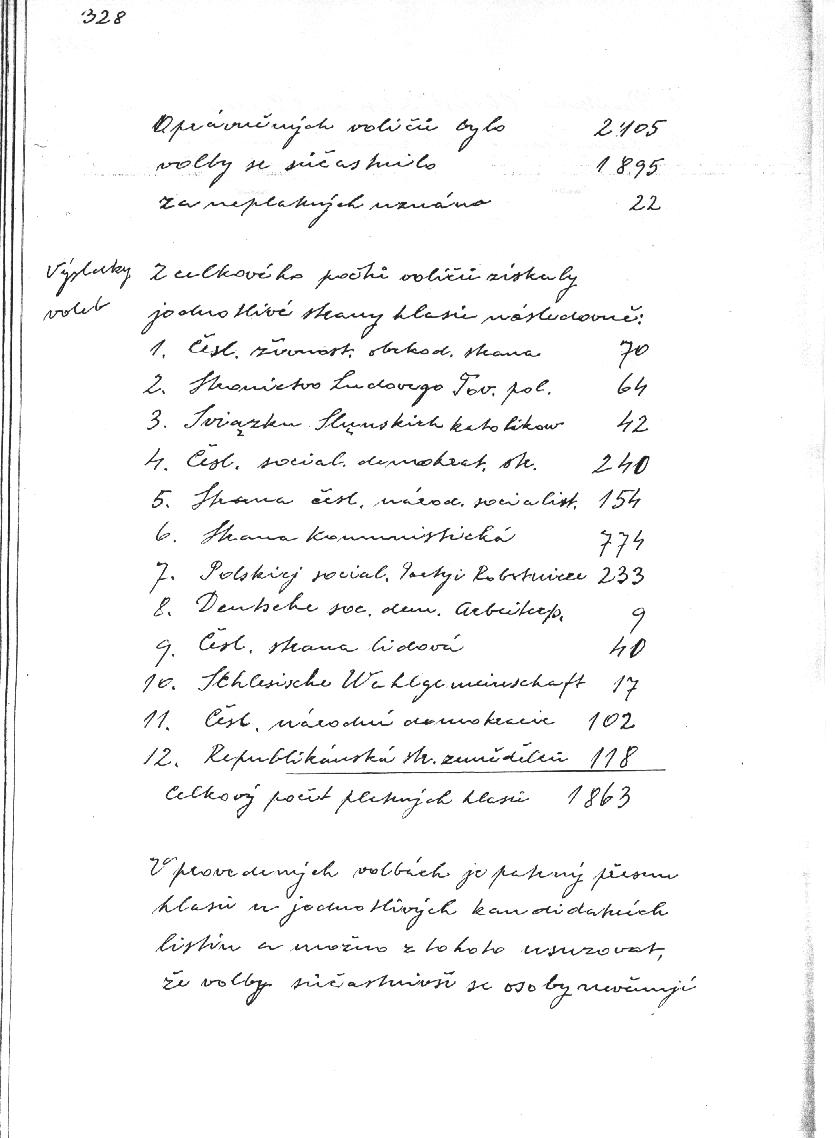 328
Oprávněných voličů bylo 2105
volby se súčastnilo 1895
za neplatných uznáno 22
Výsledky voleb
Z celkového počtu voličů získaly
jednotlivé strany hlasů následovně:
1. Čsl. živnost. obchod. strana 70
2. Stronictvo Ludovego Tov. pol. 64
3. Sviązku Slęnskich katolikow 42
4. Čsl. social. demokrat. str. 240
5. Strana čsl. národ. socialist. 154
6. Strana komunistická 774
7. Polskiej social. Partyi Robotnicee 233
8. Deutsche soc. dem. Arbeiterp. 9
9. Čsl. strana lidová 40
10. Schlesische Wahlgemeinschaft 17
11. Čsl. národní demokracie 102
12. Republikánská str. zemědělců 118
Celkový počet platných hlasů 1863
V provedených volbách je patrný přesun
hlasů u jednotlivých kandidatních
listin a možno z tohoto usuzovat,
že volby súčastnivší se osoby nevěnují